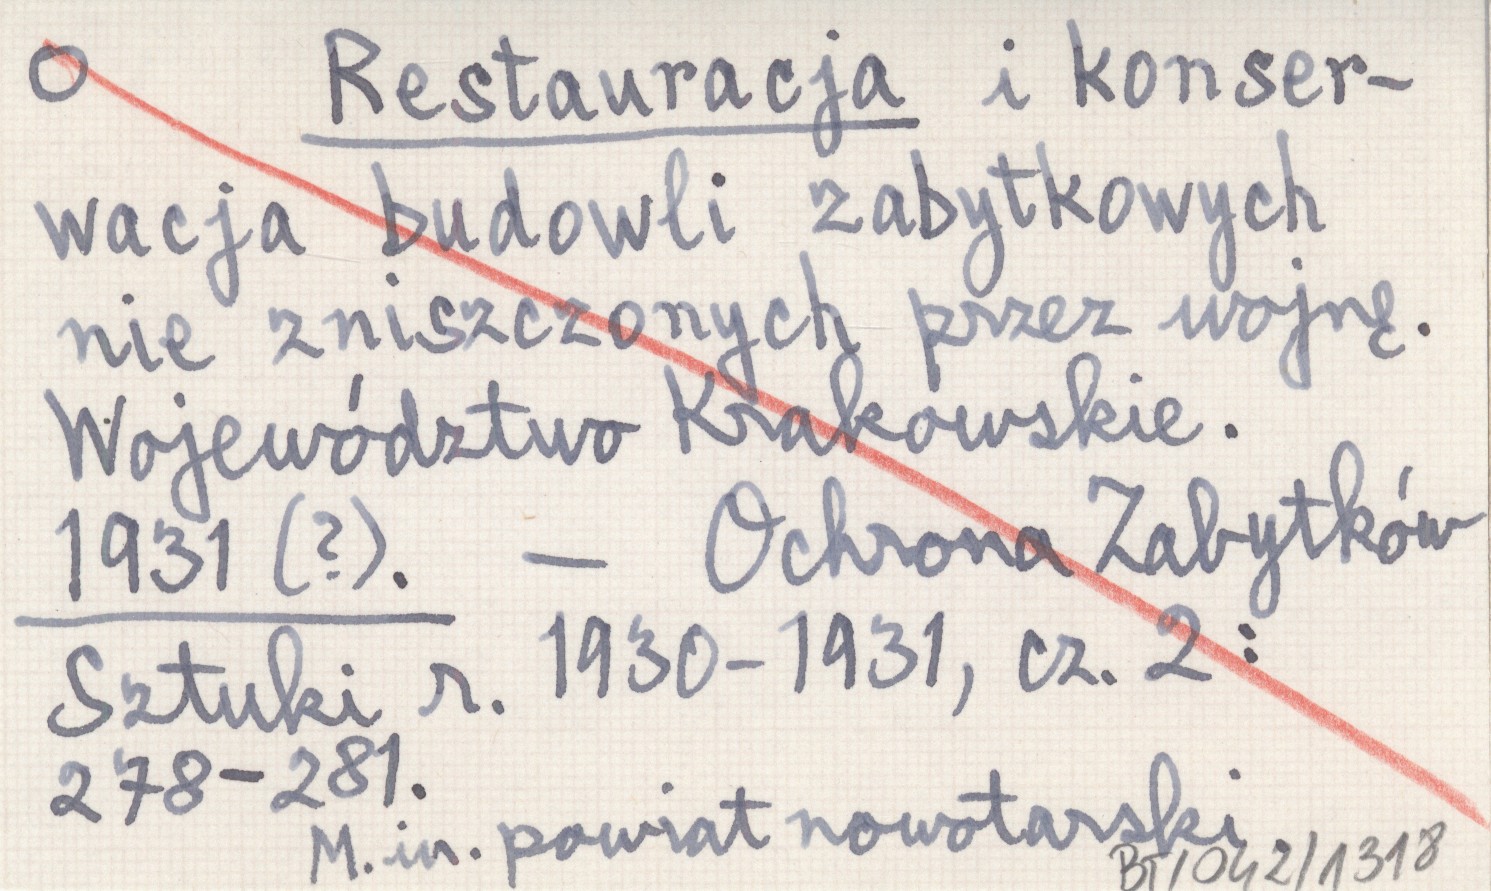 O Restauracja i konser-
wacja budowli zabytkowych
nie zniszczonych przez wojnę.
Województwo Krakowskie.
1931 (?). — Ochrona Zabytków
Sztuki r. 1930-1931, cz. 2:
278-281.
M.in. powiat nowotarski.
BT/042/1318